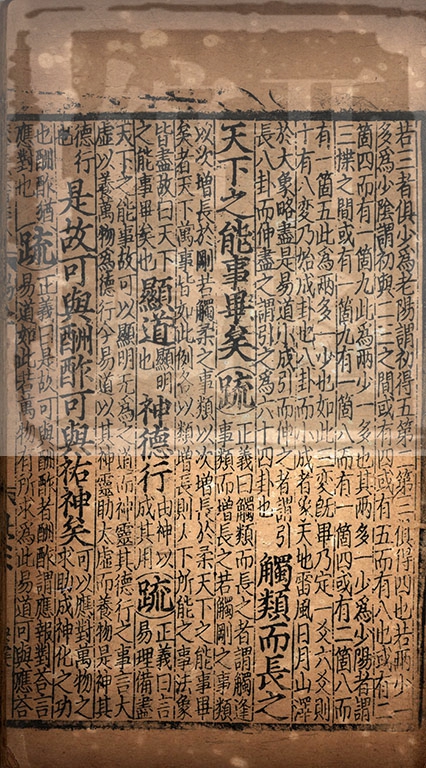 若三者俱少為老陽謂初得五第二第三俱得四也若兩少一
多為少陰謂初與二三之間或有四或有五而有八也或有二
箇四而有一箇九此為兩少一多也其兩多一少為少陽者謂
三揲之間或有一箇九有一箇八而有一箇四或有二箇八而
有一箇五此為兩多一少也如此三變既畢乃定一爻六爻則
十有八變乃始成卦也八卦而小成者象天地雷風日月山澤
於大象略盡是易道小成引而伸之者謂引
長八卦而伸盡之謂引之為六十四卦也
觸類而長之
天下之能事畢矣
疏
正義曰觸類而長之者謂觸逢
事類而增長之若觸剛之事類
以次增長於剛若觸柔之事類以次增長於柔天下之能事畢
矣者天下萬事皆如此例各以類增長則天下所能之事法象
皆盡故曰天下
之能事畢矣也
顯道
顯明
也
神德行
由神以
成其用
疏
正義曰言
易理備盡
天下之能事故可以顯明无為之道而神靈其德行之事言大
虛以養萬物為德行今易道以其神靈助太虛而養物是神其
德行
也
是故可與酬酢可與祐神矣
可以應對萬物之
求助成神化之功
也酬酢猶
應對也
疏
正義曰是故可與酬酢者酬酢謂應報對荅言
易道如此若萬物有所求為此易道可與應荅